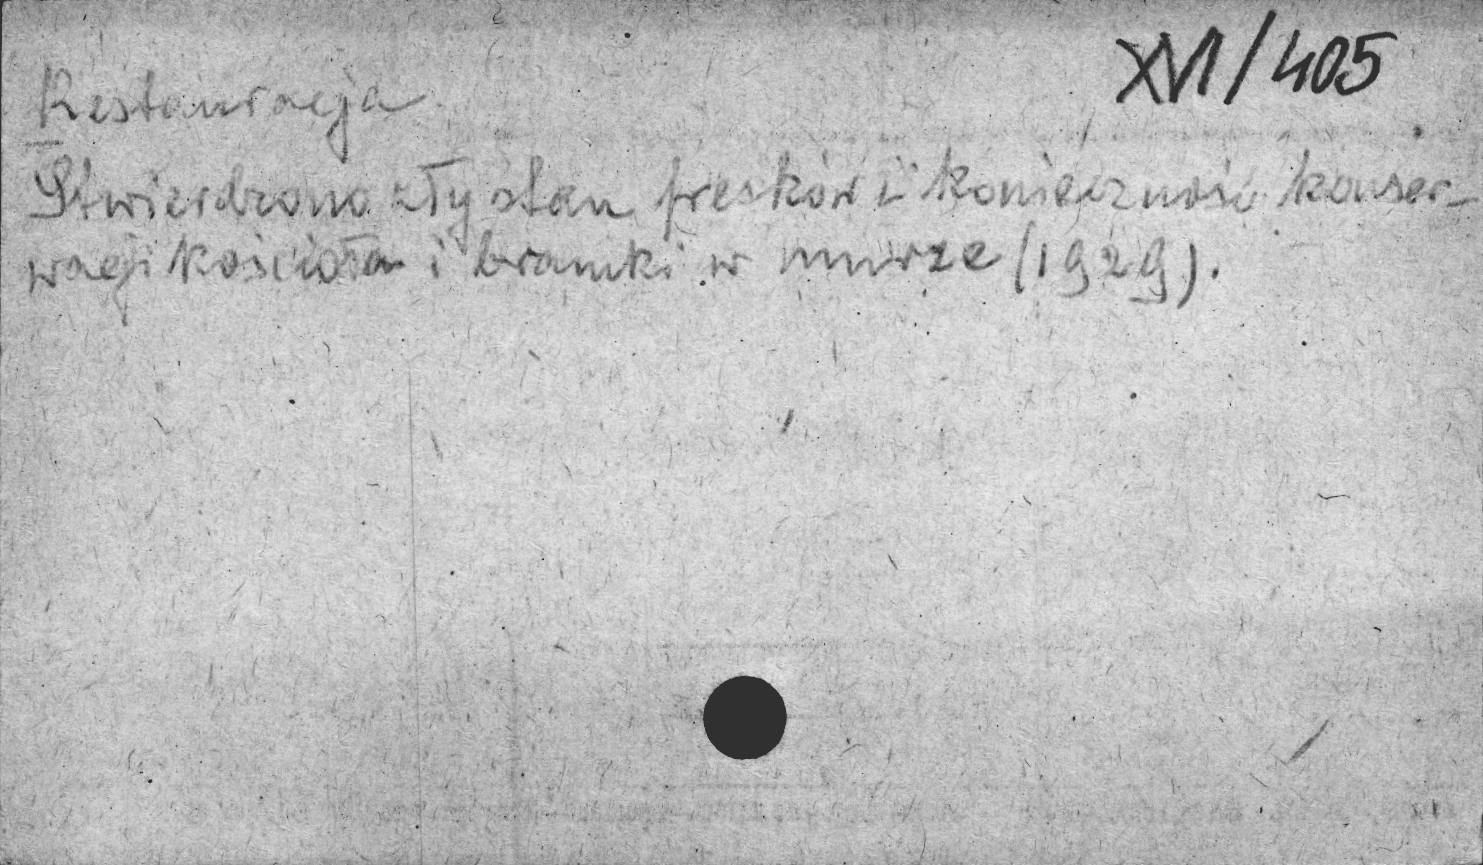 XVI/405
Restauracja
Stwierdzono zły stan fresków i konieczność konser-
wacji kościoła i bramki w murze (1929).